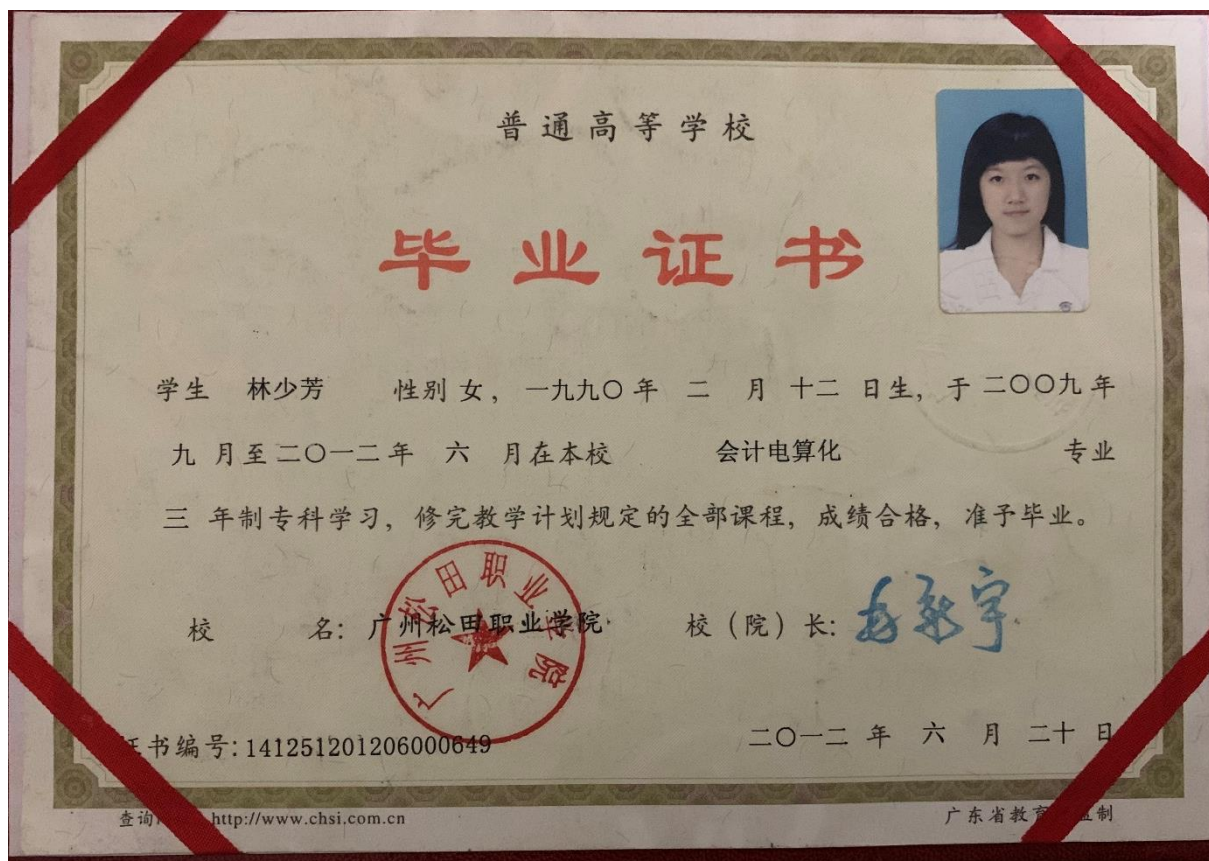 普通高等学校
毕业证书
学生 林少芳 性别 女，一九九〇年 二 月 十二 日生，于 二〇〇九 年
九 月至 二〇一二 年 六 月在本校 会计电算化 专业
三 年制专科学习，修完教学计划规定的全部课程，成绩合格，准予毕业。
广州松田职业学院
校 名：广州松田职业学院 校（院）长：
证书编号：141251201206000649 二〇一二 年 六 月 二十 日
查询 http://www.chsi.com.cn 广东省教育 监制